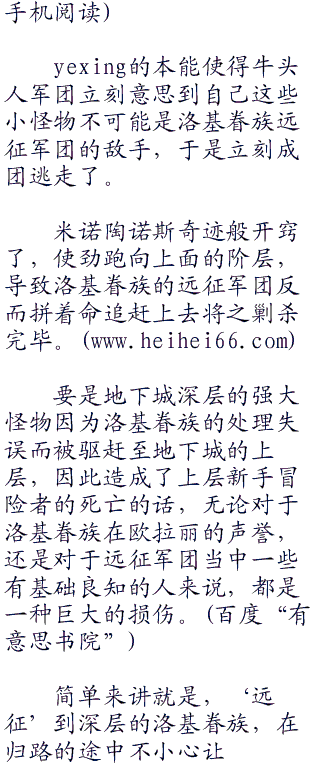 手机阅读)
yexing的本能使得牛头
人军团立刻意思到自己这些
小怪物不可能是洛基眷族远
征军团的敌手，于是立刻成
团逃走了。
米诺陶诺斯奇迹般开窍
了，使劲跑向上面的阶层，
导致洛基眷族的远征军团反
而拼着命追赶上去将之剿杀
完毕。(www.heihei66.com)
要是地下城深层的强大
怪物因为洛基眷族的处理失
误而被驱赶至地下城的上
层，因此造成了上层新手冒
险者的死亡的话，无论对于
洛基眷族在欧拉丽的声誉，
还是对于远征军团当中一些
有基础良知的人来说，都是
一种巨大的损伤。(百度“有
意思书院”)
简单来讲就是，‘远
征’到深层的洛基眷族，在
归路的途中不小心让